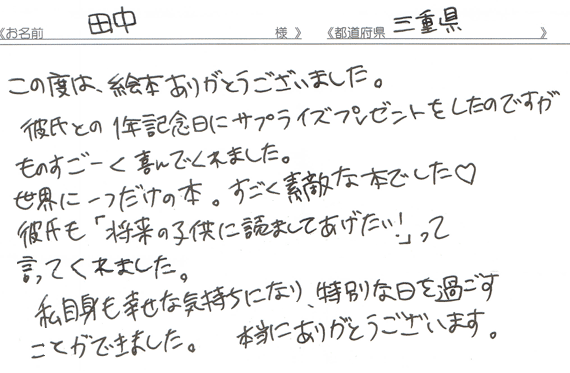 《お名前 田中 様 》 《都道府県 三重県 》
この度は、絵本ありがとうございました。
彼氏との1年記念日にサプライズプレゼントをしたのですが
ものすごーく喜んでくれました。
世界に一つだけの本。すごく素敵な本でした♡
彼氏も「将来の子供に読ましてあげたい!」って
言ってくれました。
私自身も幸せな気持ちになり、特別な日を過ごす
ことができました。 本当にありがとうございます。